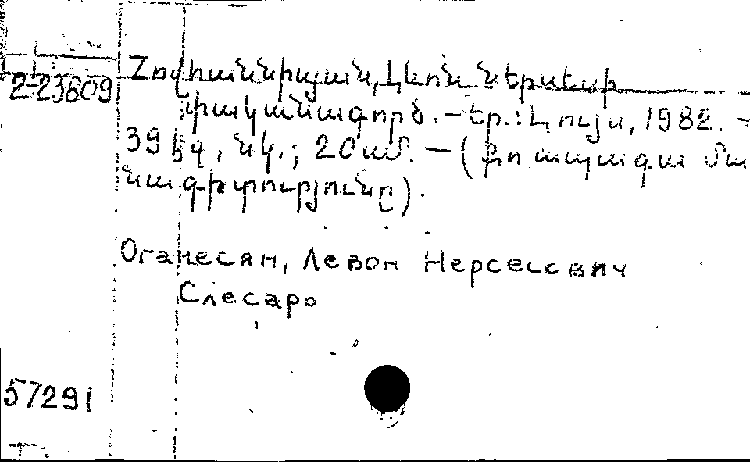 2-23609 Հովհաննիսյան, Լևոն Ներսեսի
փականագործ. – Եր.: Լույս, 1982. –
39 էջ, նկ.; 20 սմ. – (Քո ապագա մա
նագիտությունը).
Оганесян, Левон Нерсесович
Слесаро
57291